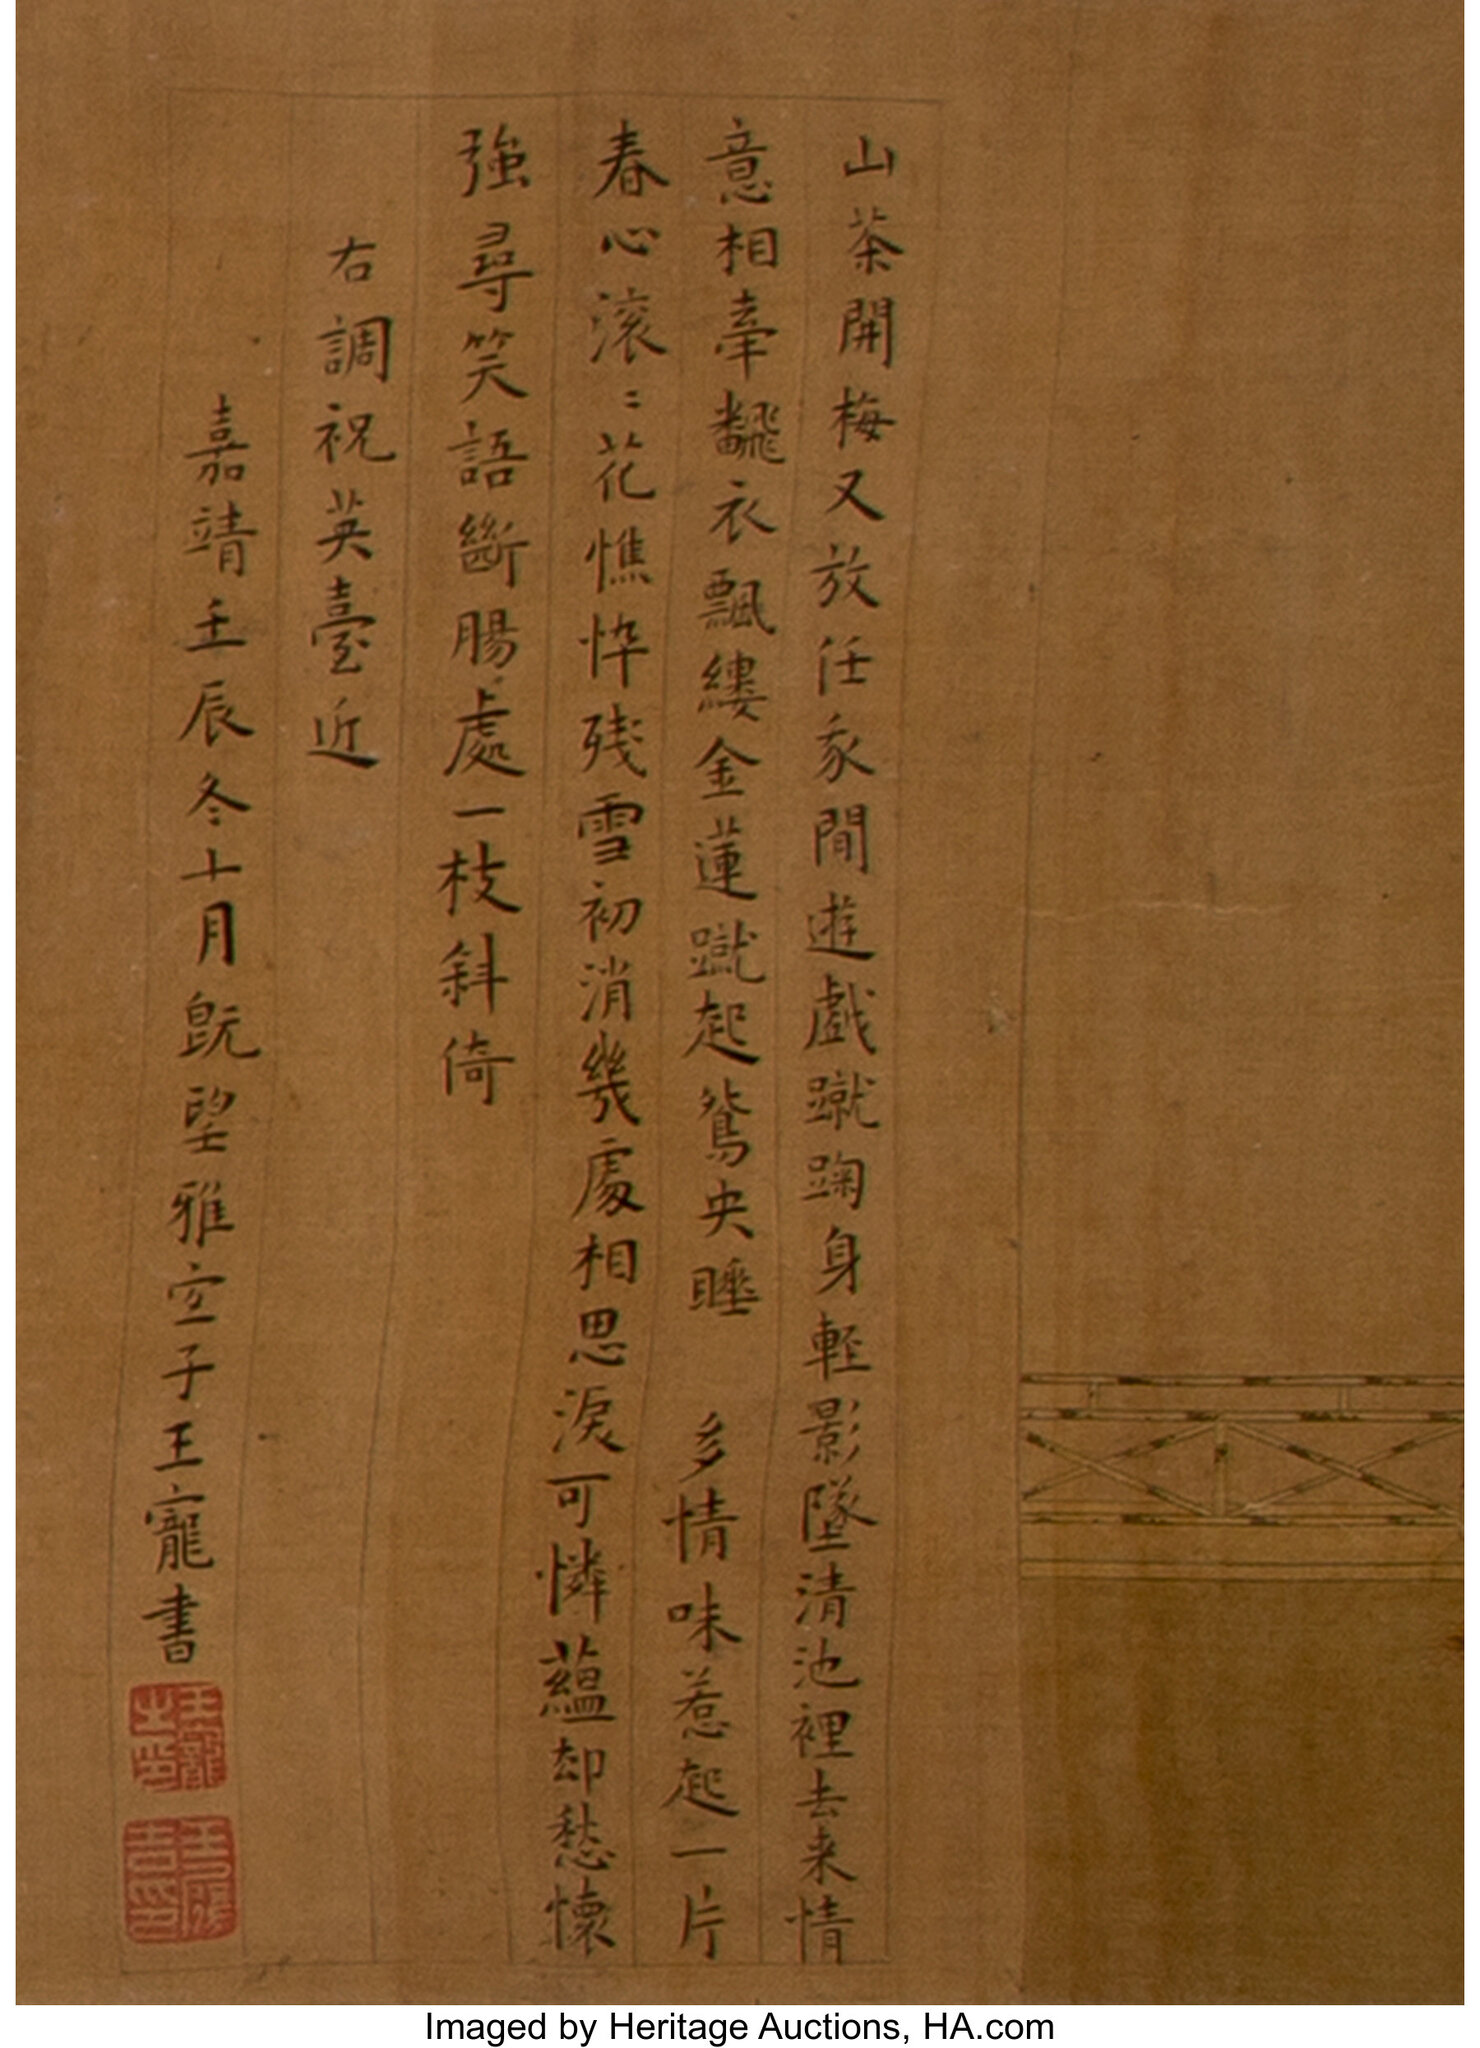 山茶開梅又放任家閒遊戲蹴踘身軽影墜清池裡去来情
意相牽飜衣飄縷金蓮蹴起鴛央睡　多情味惹起一片
春心滚〻花憔悴残雪初消幾處相思淚可憐蘊却愁懷
強尋笑語斷腸處一枝斜倚
右調祝英臺近
嘉靖壬辰冬十月既望雅宜子王寵書
王寵之印
Imaged by Heritage Auctions, HA.com